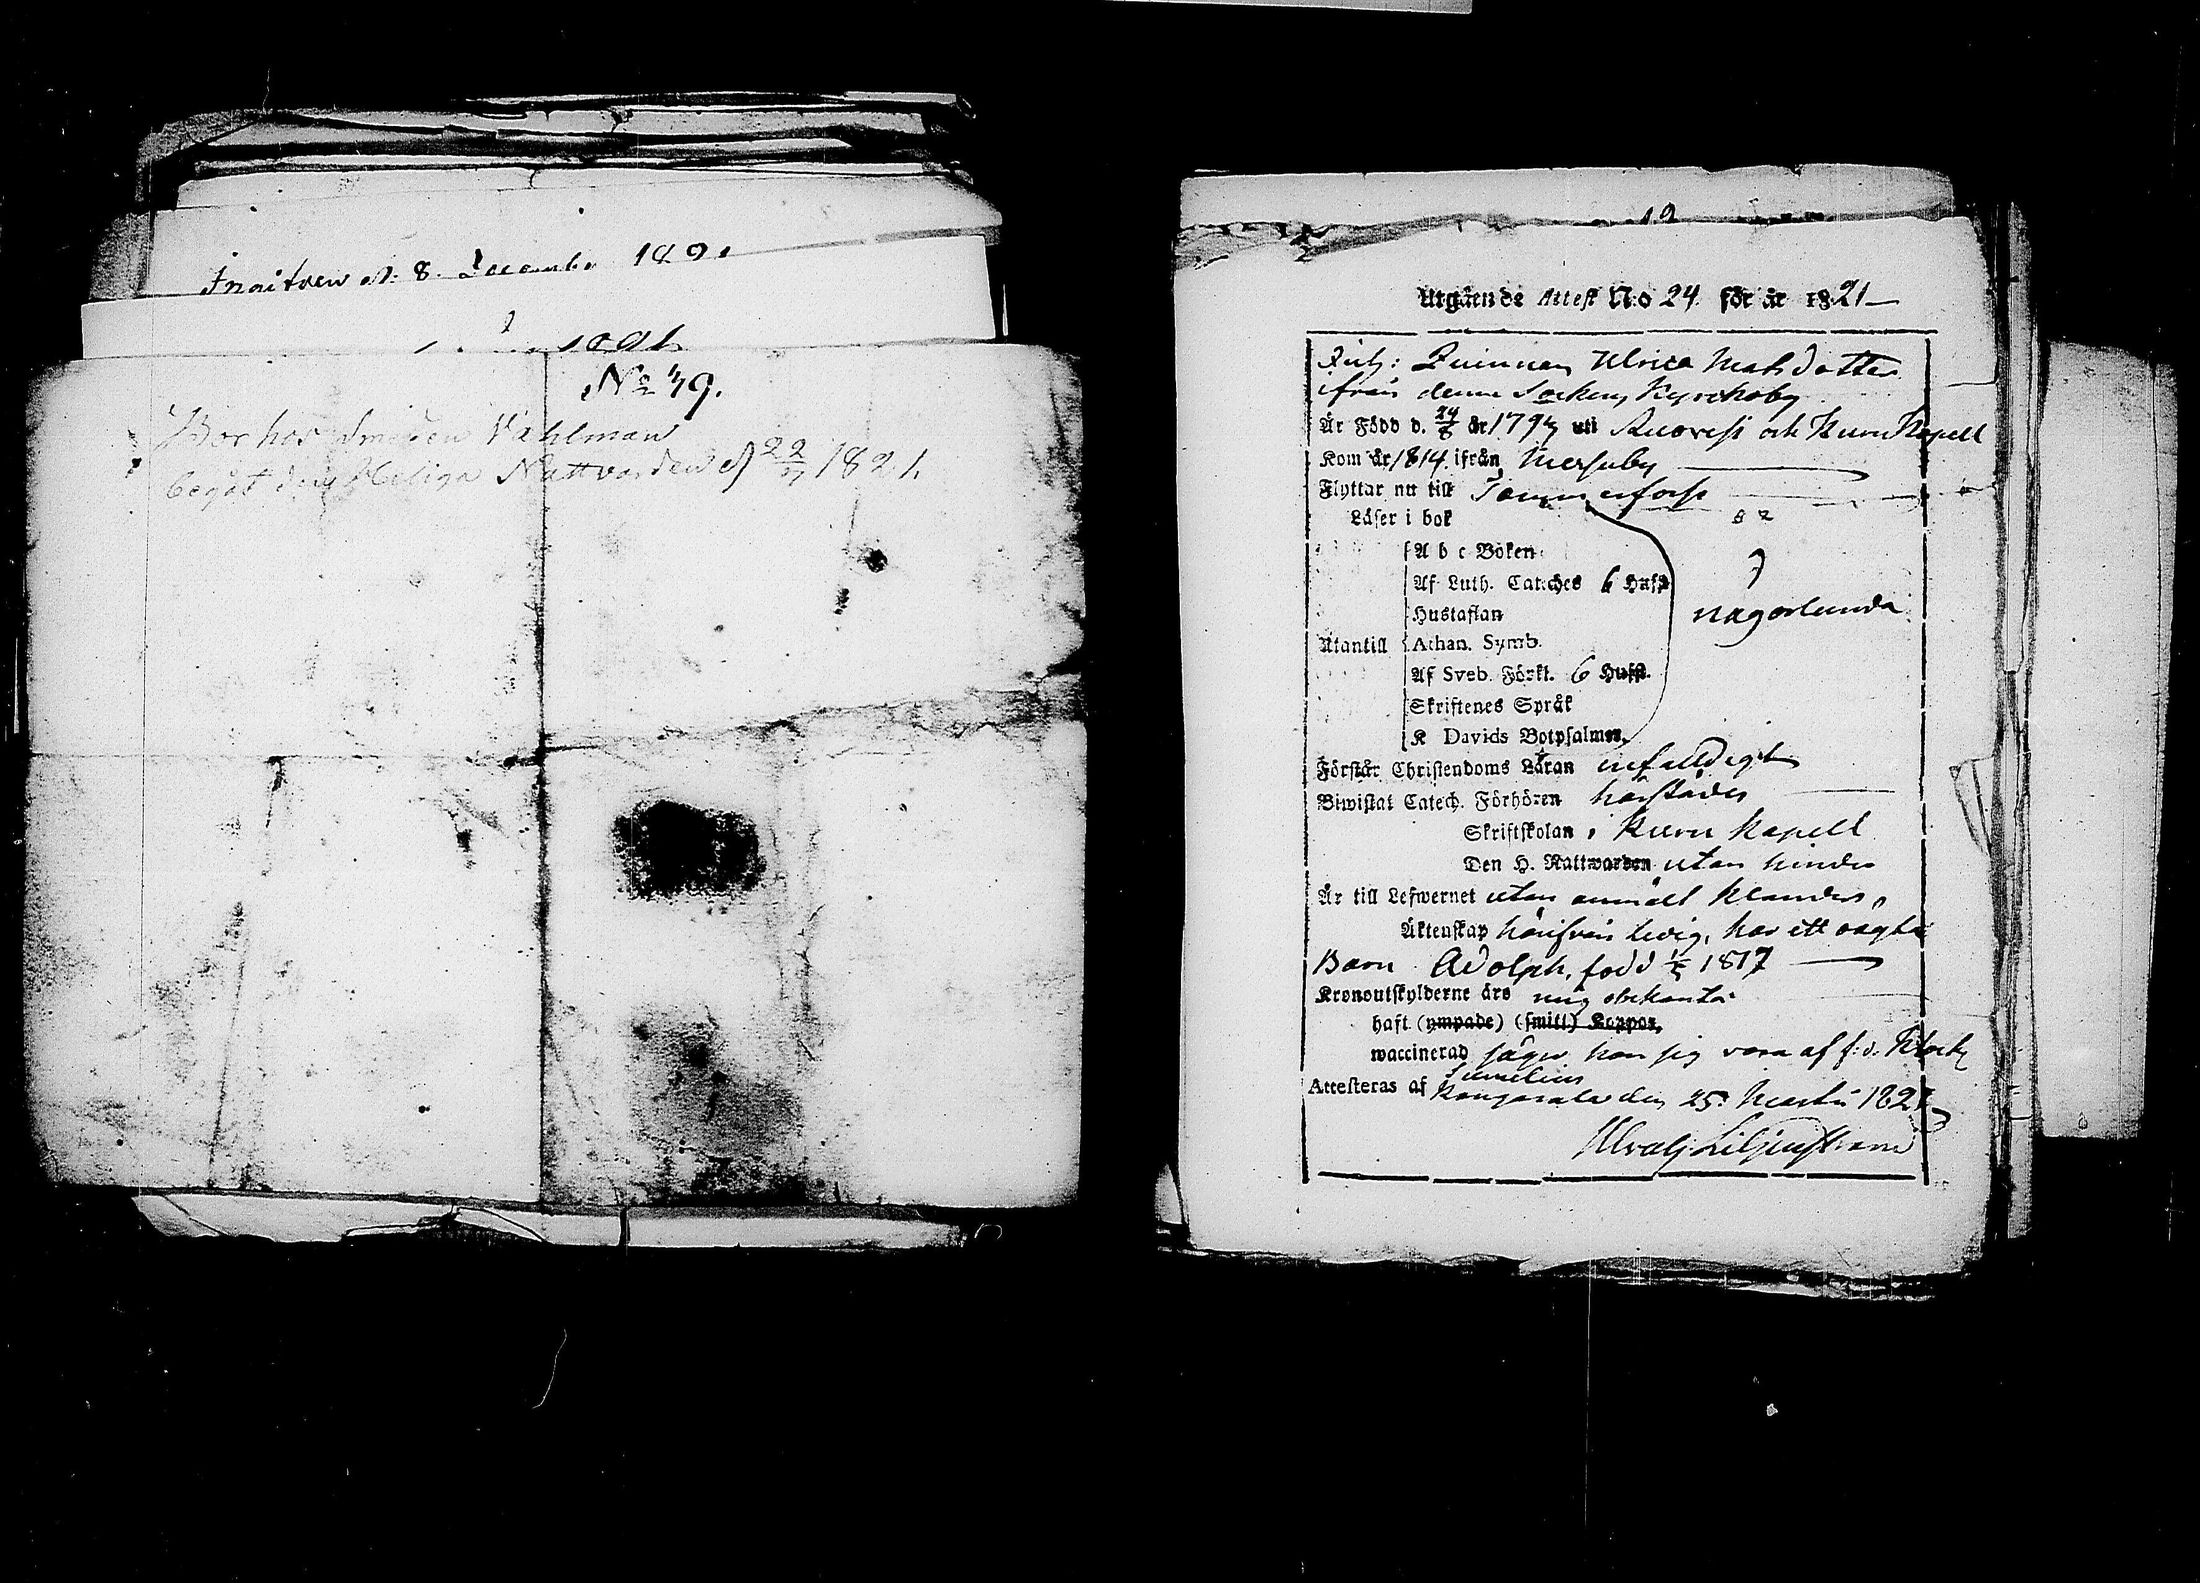 Inskrifven d. 8. December 1821
No 49.
Bor hos Smeden Vahlman
begåt den Heliga Nattvarden d 22/7 1821.
Utgående Attest No 24 för år 1821
Inh: Qvinnan Ulrica Matsdotter
ifrån denne Sockens Kyrckoby
Är Född d. 24/8 år 1794 uti Ruovesi och Kuru Kapell
Kom år 1814 ifrån
Flyttar nu till Tammerfors
Läser i bok
A b c Boken
Af Luth. Catches 6 Hufst
Hustaflan
någorlunda
Utantill Athan. Symb.
Af Sveb. Förkl. 6 Hufst.
Skriftenes Språk
K Davids Botpsalmer,
Förstår Christendoms Läran enfaldigt
Biwistat Catech. Förhören härstädes
Skriftskolan i Kuru Kapell
Den H. Nattwarden utan hinder
Är till Lefwernet utan anmält klander,
Äktenskap härifrån ledig, har ett oägta
Barn Adolph, född 1817
Kronoutskylderne äro mig obekanta
haft (ympade) (smitt) Koppor,
waccinerad säger hon sig vara af f. d. Klock.
Attesteras af Kangasala den 25 Martii 1821
Liljenstrand